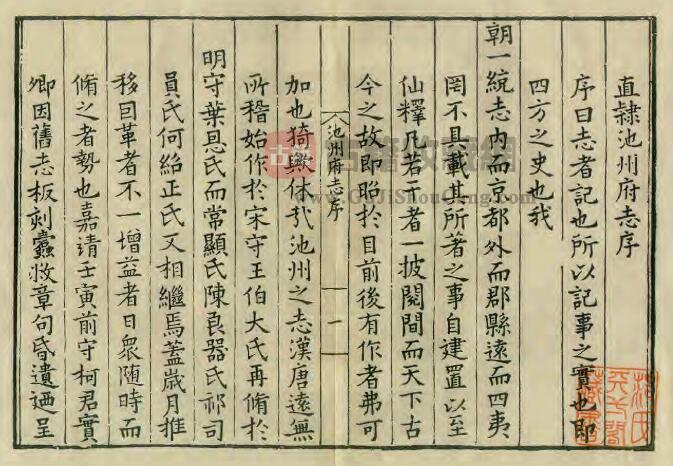 直隸池州府志序
序曰志者記也所以記事之實也即
四方之史也我
朝一統志內而京都外而郡縣遠而四夷
罔不具載其所著之事自建置以至
仙釋凡若干者一披閱間而天下古
今之故即昭於目前後有作者弗可
池州府志序
一
加也猗歟休哉池州之志漢唐遠無
所稽始作於宋守王伯大氏再脩於
明守葉恩氏而常顯氏陳良器氏祁司
員氏何紹正氏又相繼焉蓋歲月推
移因革者不一增益者日衆随時而
脩之者勢也嘉靖壬寅前守柯君實
卿因舊志板刻蠹敚章句昏遺廼呈
古籍收藏網
www.GuJiShouCang.com
范氏
天一閣
藏書